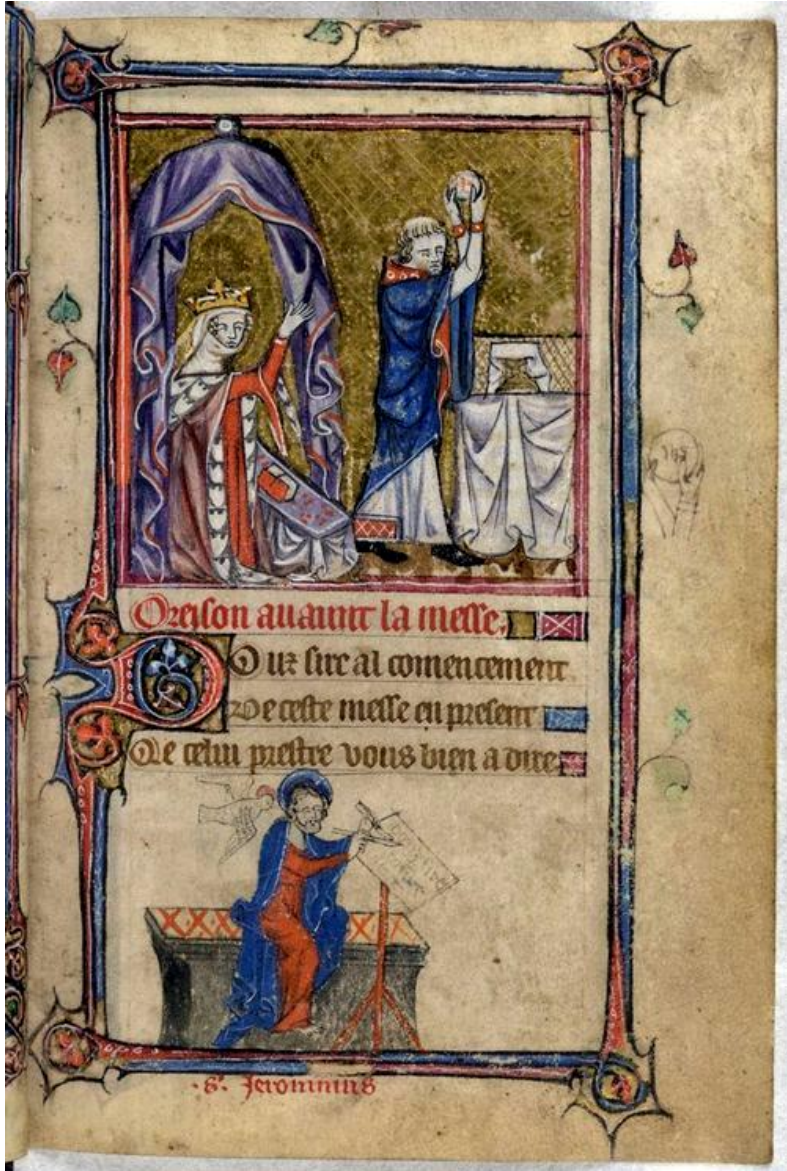 Oreison auaunt la messe.
VOuz sire al comencement
De ceste messe en present
Qe celui prestre vous bien a dire
.S. Jeronimus